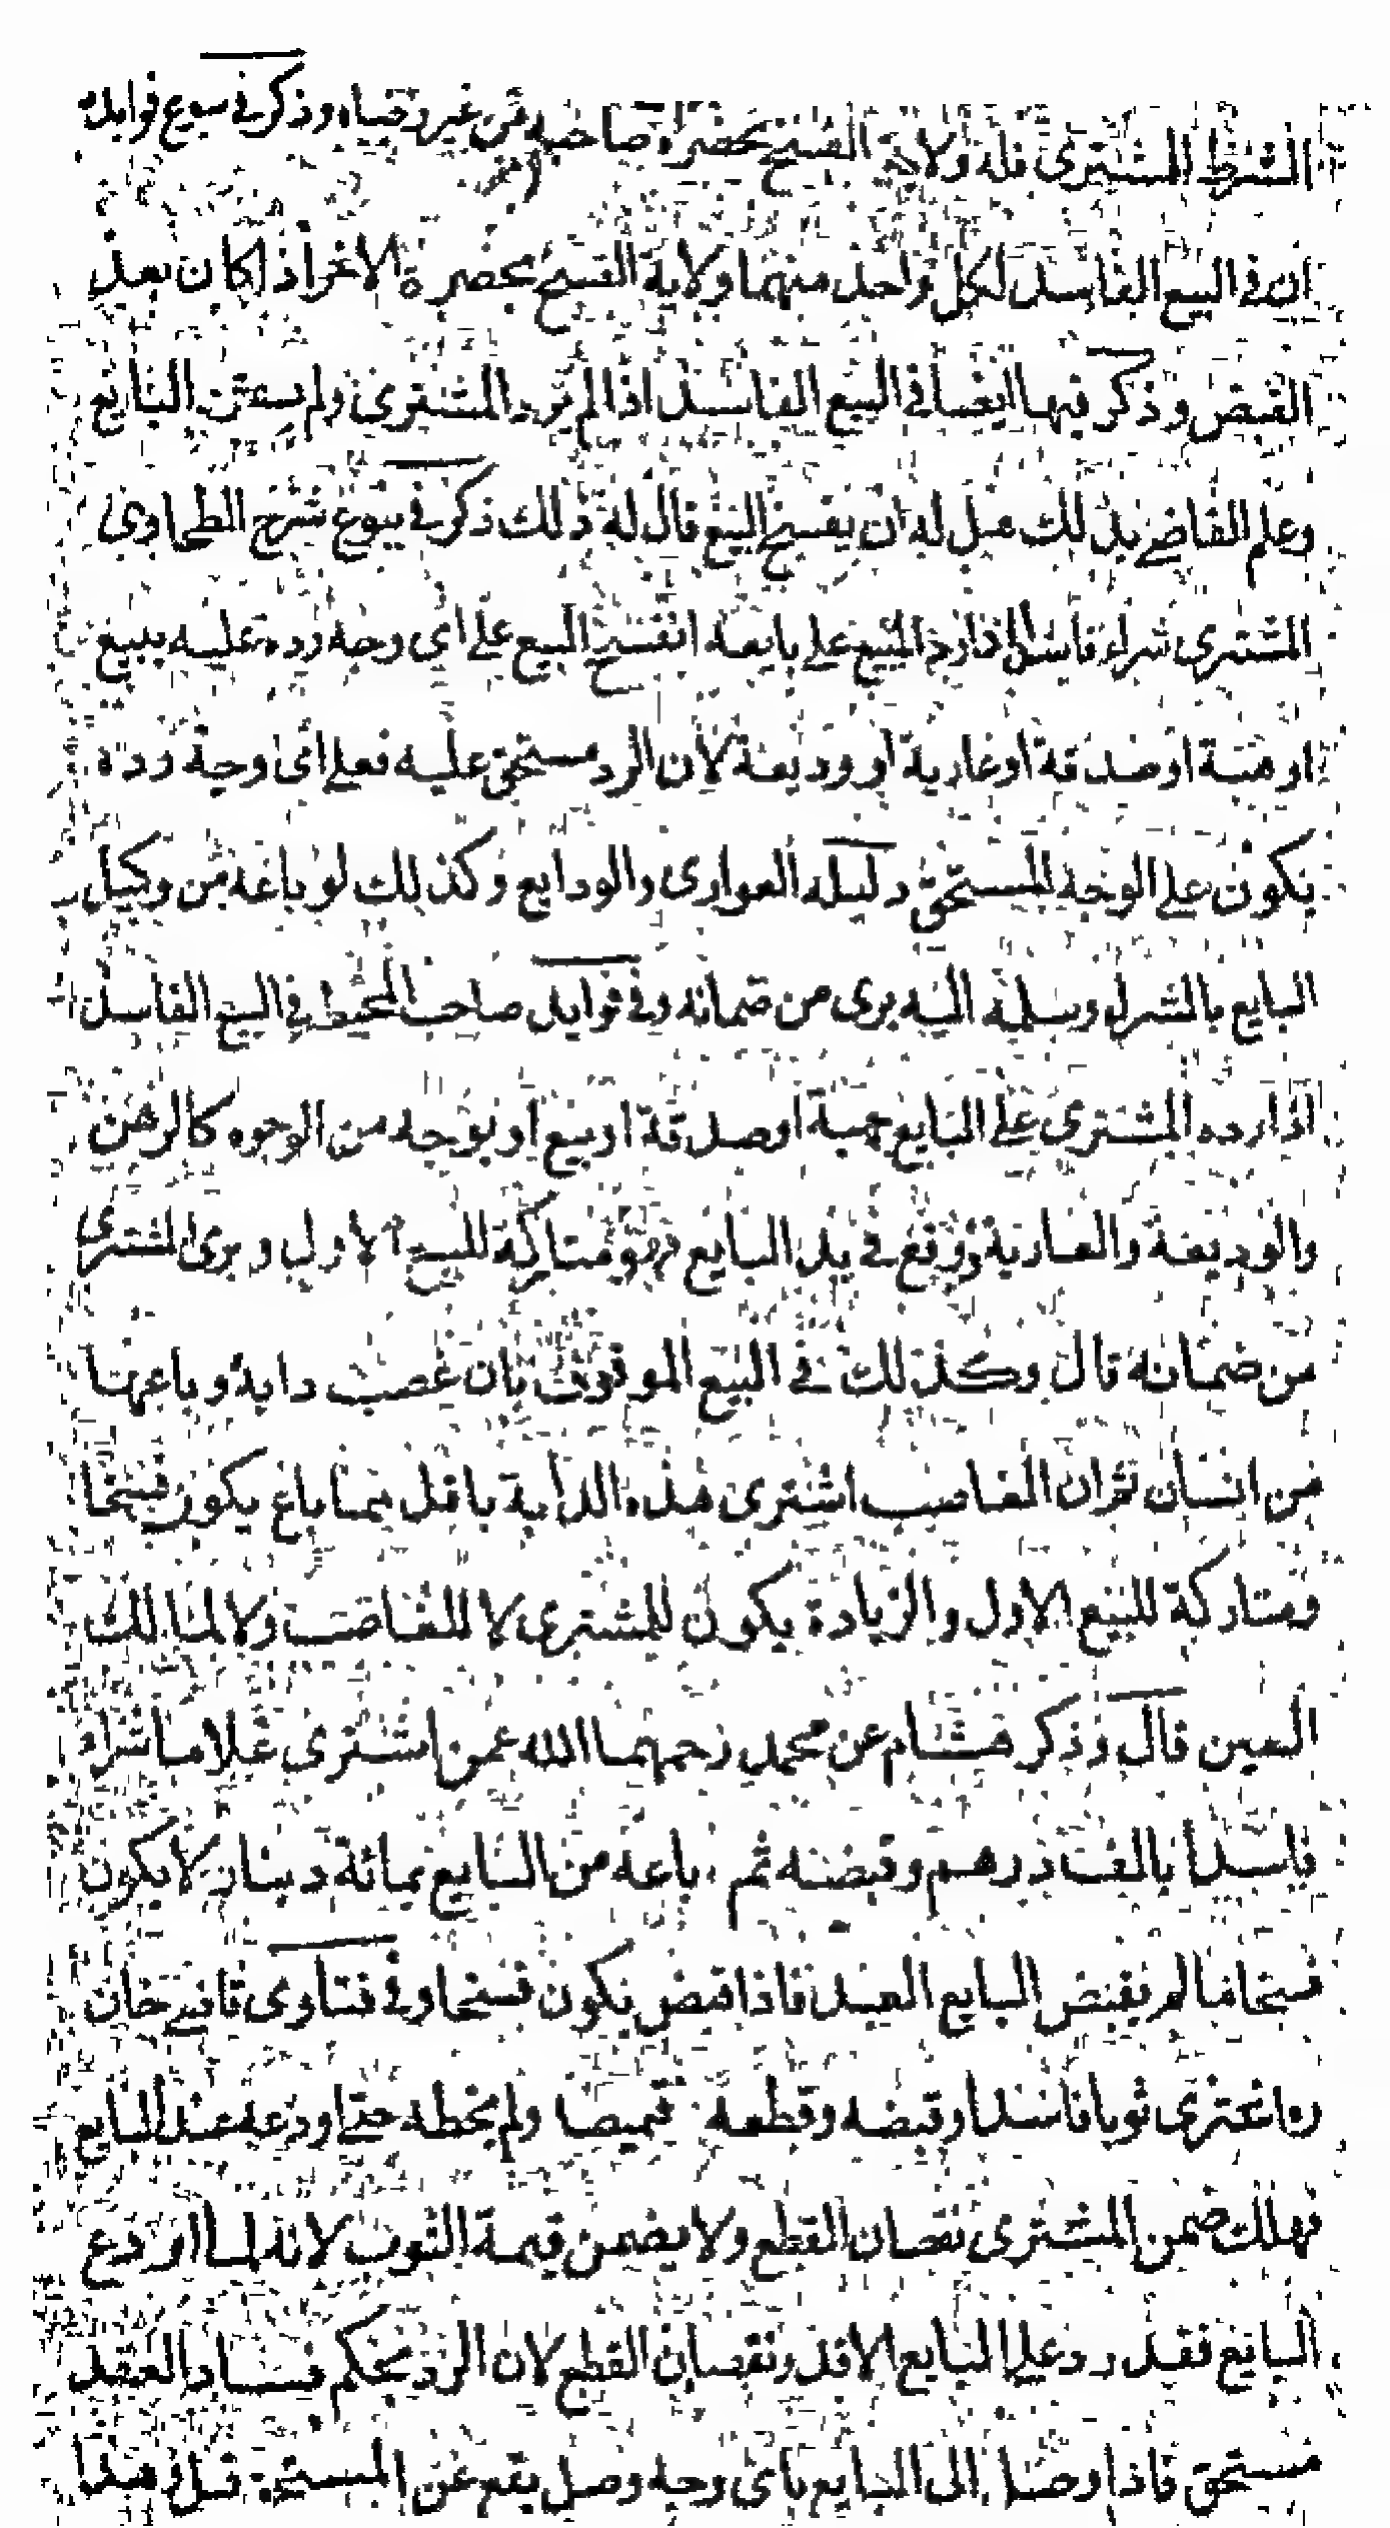 الشرط المشترى فله ولاية الفسخ بحضرة صاحبه من غير رضاه وذكر في بيوع فوايده
ان في البيع الفاسد لكل واحد منهما ولاية الفسخ بحضرة الاخر اذا كان بعد
القبض وذكر فيها ايضا في البيع الفاسد اذا لم يرد المشترى ولم البايع
وعلم القاضي بذلك هل له ان يفسخ البيع قال له ذلك ذكر في بيوع شرح الطحاوى
المشترى شراء فاسدا اذا رد المبيع على بايعه انفسخ البيع على اي وجه رده عليه ببيع
او هبة او صدقة او عارية او وديعة لان الرد مستحق عليه فعلى اى وجه رده
يكون على الوجه المستحق دليله العوارى والودايع وكذلك لو باعه من وكيل
البايع بالشرا وسلمه اليه برى من ضمانه وفي فوايد صاحب المحيط في البيع الفاسد
اذا رده المشترى على البايع بهبة او صدقة او بيع او بوجه من الوجوه كالرهن
والوديعة والعارية ووقع في يد البايع فهو متاركة للبيع الاول وبرى المشترى
من ضمانه قال وكذلك في البيع الموقوف بان غصب دابة وباعها
من انسان ثم ان الغاصب اشترى هذه الدابة باقل مما باع يكون فسخا
ومتاركة للبيع الاول والزيادة يكون للمشترى لا للغاصب ولا لمالك
العين قال وذكر هشام عن محمد رحمهما الله عمن اشترى غلاما شراء
فاسدا بالف درهم وقبضه ثم باعه من البايع بمائة دينار لا يكون
فسخا ما لم يقبض البايع العبد فاذا قبض يكون فسخا وفي فتاوى قاضي خان
اشترى ثوبا فاسدا وقبضه وقطعه قميصا ولم يخطه حتى اودعه عند البايع
فهلك ضمن المشترى نقصان القطع ولا يضمن قيمة الثوب لانه لما اودع
البايع فقد رد على البايع الا قدر نقصان القطع لان الرد بحكم فساد العقد
مستحق فاذا وصل الى البايع باى وجه وصل يقع عن المستحق